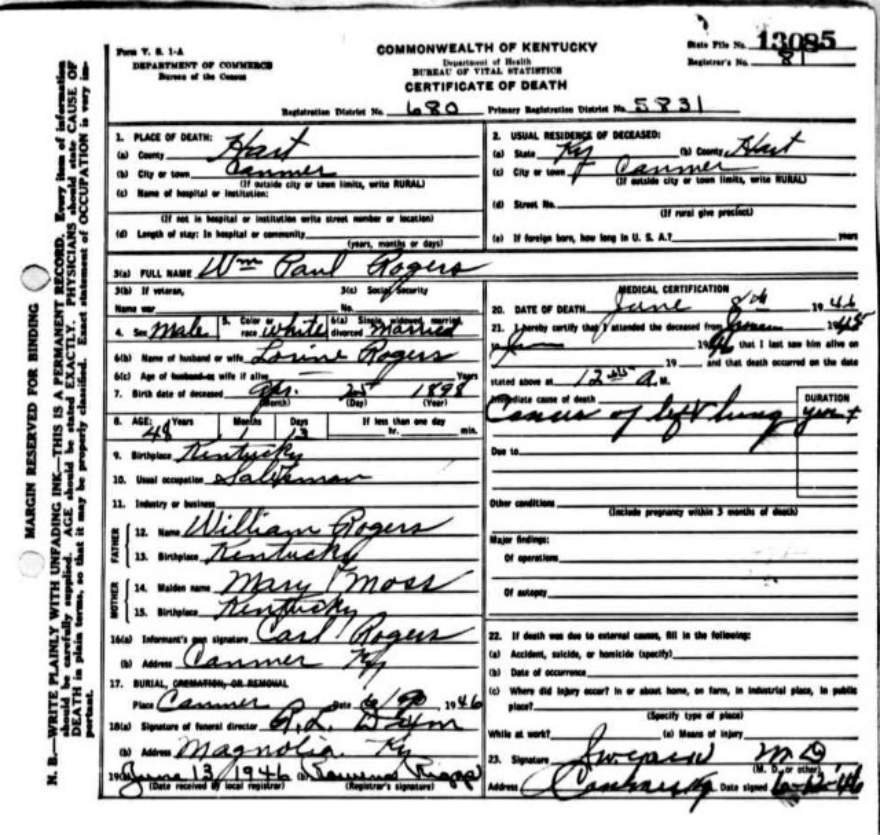 Form V. S. 1-A
DEPARTMENT OF COMMERCE
Bureau of the Census
COMMONWEALTH OF KENTUCKY
Department of Health
BUREAU OF VITAL STATISTICS
CERTIFICATE OF DEATH
State File No. 13085
Registrar's No. 81
Registration District No. 680 Primary Registration District No. 5831
MARGIN RESERVED FOR BINDING
N. B.—WRITE PLAINLY WITH UNFADING INK—THIS IS A PERMANENT RECORD. Every item of information
should be carefully supplied. AGE should be stated EXACTLY. PHYSICIANS should state CAUSE OF
DEATH in plain terms, so that it may be properly classified. Exact statement of OCCUPATION is very im-
portant.
1. PLACE OF DEATH:
(a) County Hart
(b) City or town Canmer
(If outside city or town limits, write RURAL)
(c) Name of hospital or institution:
(If not in hospital or institution write street number or location)
(d) Length of stay: In hospital or community
(years, months or days)
2. USUAL RESIDENCE OF DECEASED:
(a) State Ky (b) County Hart
(c) City or town Canmer
(If outside city or town limits, write RURAL)
(d) Street No.
(If rural give precinct)
(e) If foreign born, how long in U. S. A.? years
3(a) FULL NAME Wm Paul Rogers
3(b) If veteran,
Name war
3(c) Social Security
No.
4. Sex Male 5. Color or race white 6(a) Single, widowed, married, divorced Married
6(b) Name of husband or wife Lorine Rogers
6(c) Age of husband or wife if alive Years
7. Birth date of deceased Apr. 25 1898
(Month) (Day) (Year)
8. AGE: Years Months Days If less than one day
48 1 13 hr. min.
9. Birthplace Kentucky
10. Usual occupation Salesman
11. Industry or business
FATHER
12. Name William Rogers
13. Birthplace Kentucky
MOTHER
14. Maiden name Mary Moss
15. Birthplace Kentucky
16(a) Informant's own signature Carl Rogers
(b) Address Canmer Ky
17. BURIAL, CREMATION, OR REMOVAL
Place Canmer Date 6/9, 1946
18(a) Signature of funeral director R. L.
(b) Address Magnolia Ky
19(a) June 13, 1946 (b)
(Date received by local registrar) (Registrar's signature)
MEDICAL CERTIFICATION
20. DATE OF DEATH June 8th 1946
21. I hereby certify that I attended the deceased from 1945
1946 that I last saw him alive on
19 and that death occurred on the date
stated above at 12 A. M.
Immediate cause of death
Cancer of left lung
DURATION
Due to
Other conditions
(Include pregnancy within 3 months of death)
Major findings:
Of operations
Of autopsy
22. If death was due to external causes, fill in the following:
(a) Accident, suicide, or homicide (specify)
(b) Date of occurrence
(c) Where did injury occur? In or about home, on farm, in industrial place, in public
place?
(Specify type of place)
While at work? (e) Means of injury
23. Signature M D
(M. D. or other)
Address Date signed